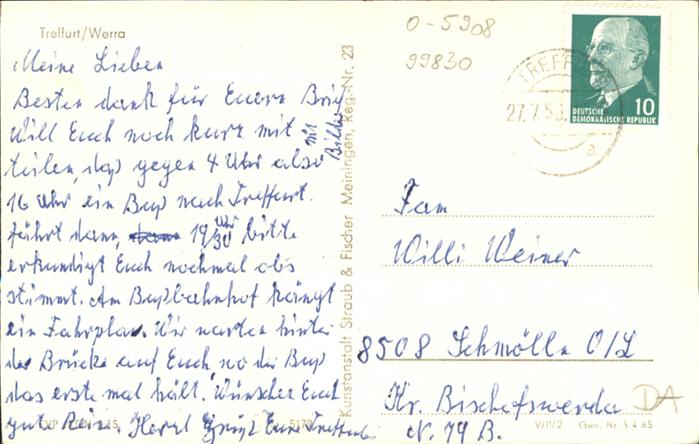 Treffurt/Werra
Meine Lieben
Besten dank für Euern Brief
mit Bilder
Will Euch noch kurz mit
teilen, daß gegen 4 Uhr also
16 Uhr ein Buß nach Treffurt.
fährt dann, 19/30 Uhr bitte
erkundigt Euch nochmal obs
stimmt. Am Bußbahnhof hängt
ein Fahrplan. Wir warten hinter
der Brücke auf Euch, wo der Buß
das erste mal hält. Wünschen Euch
gute Reise. Herzl Grüße Eure Treffurter
Kunstanstalt Straub & Fischer Meiningen, Reg.-Nr. 23
O-5908
99830
TREFFURT
27.7.
a
10
DEUTSCHE
DEMOKRATISCHE REPUBLIK
Fam
Willi Weiner
8508 Schmölln O/L
Kr. Bischofswerda
N. 74 B.
DA
V/11/2 Gen. Nr. S 4 65